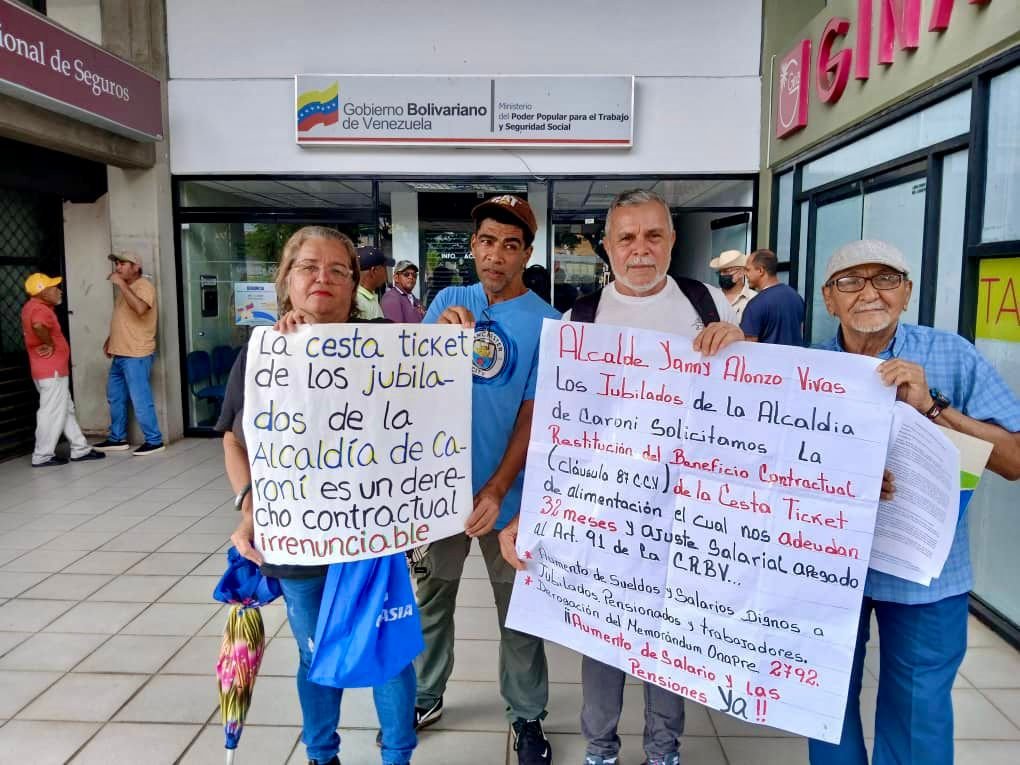 ional de Seguros
Gobierno Bolivariano
de Venezuela
Ministerio
del Poder Popular para el Trabajo
y Seguridad Social
GINA
INFO
La cesta ticket
de los jubila-
dos de la
Alcaldía de Ca-
roní es un dere-
cho contractual
irrenunciable
Alcalde Yanny Alonzo Vivas
Los Jubilados de la Alcaldia
de Caroni Solicitamos La
Restitución del Beneficio Contractual
(cláusula 87 CCV) de la Cesta Ticket
de alimentación el cual nos adeudan
32 meses y ajuste Salarial apegado
al Art. 91 de la CRBV...
* Aumento de Sueldos y Salarios Dignos a
Jubilados, Pensionados y trabajadores.
* Derogación del Memorándum Onapre 2792.
¡¡Aumento de Salario y las
Pensiones Ya!!
ASIA
TA